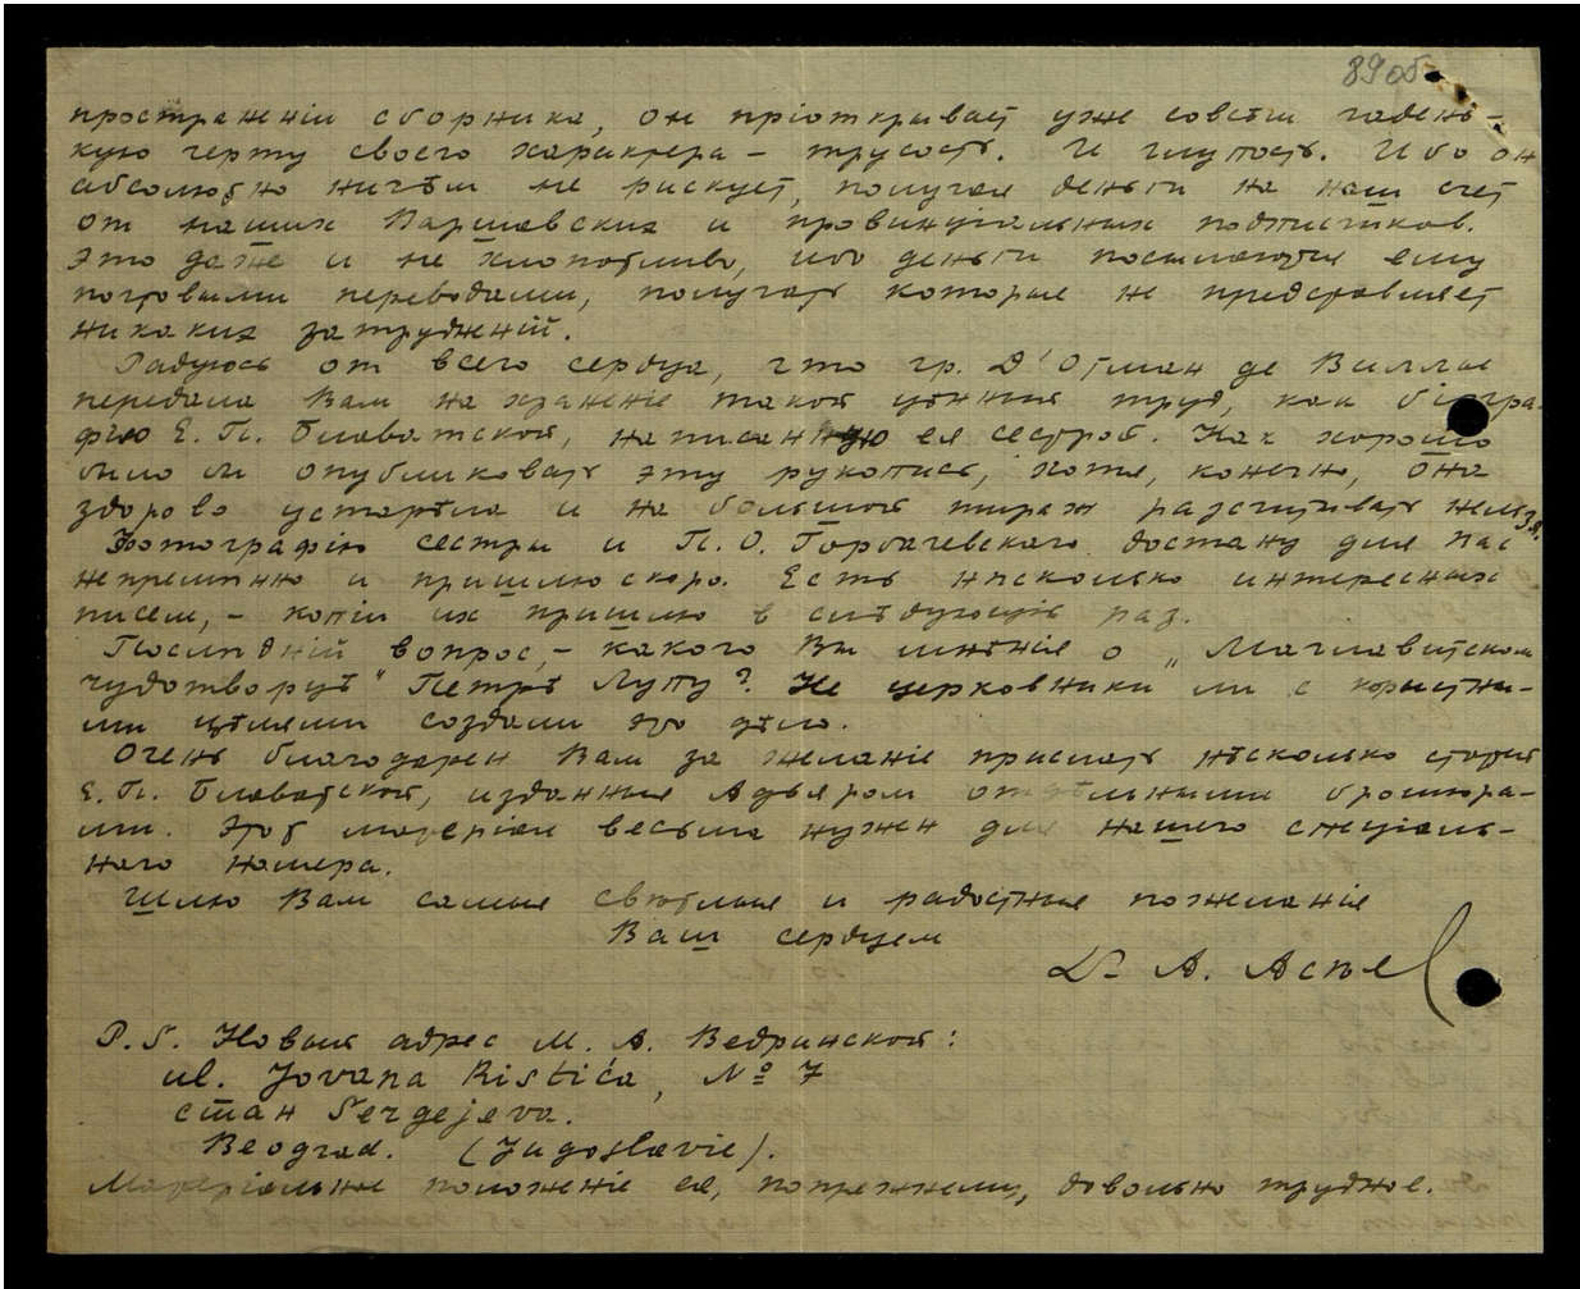 89об
пространеніи сборника, он пріоткрывает уже совсѣм гадень-
кую черту своего характера – трусость. И глупость. Ибо он
абсолютно ничѣм не рискует, получая деньги на наш счет
от наших Варшавских и провинціальных подписчиков.
Это даже и не хлопотливо, ибо деньги посылаются ему
почтовыми переводами, получать которые не представляет
никаких затрудненій.
Радуюсь от всего сердца, что гр. Д'Отман де Виллие
передала Вам на храненіе такой цѣнный труд, как біогра-
фію Е. П. Блаватской, написанную ея сестрой. Как хорошо
было бы опубликовать эту рукопись, хотя, конечно, она
здорово устарѣла и на большой тираж разсчитывать нельзя.
Фотографію сестры и П. О. Горбачевского достану для Вас
непремѣнно и пришлю скоро. Есть нѣсколько интересных
писем, – копіи их пришлю в слѣдующій раз.
Послѣдній вопрос, – какого Вы мнѣнія о „Маглавитском
чудотворцѣ" Петрѣ Лупу? Не церковники ли с корыстны-
ми цѣлями создали это дѣло.
Очень благодарен Вам за желаніе прислать нѣсколько статей
Е. П. Блаватской, изданныя Адьяром отдѣльными брошюра-
ми. Этот матеріал весьма нужен для нашего спеціаль-
наго номера.
Шлю Вам самыя свѣтлыя и радостныя пожеланія
Ваш сердцем
Dr А. Асѣе
P.S. Новый адрес М. А. Ведринской:
ul. Jovana Ristića, № 7
стан Sergejeva.
Beograd. (Jugoslavie).
Матеріальное положеніе ея, попрежнему, довольно трудное.